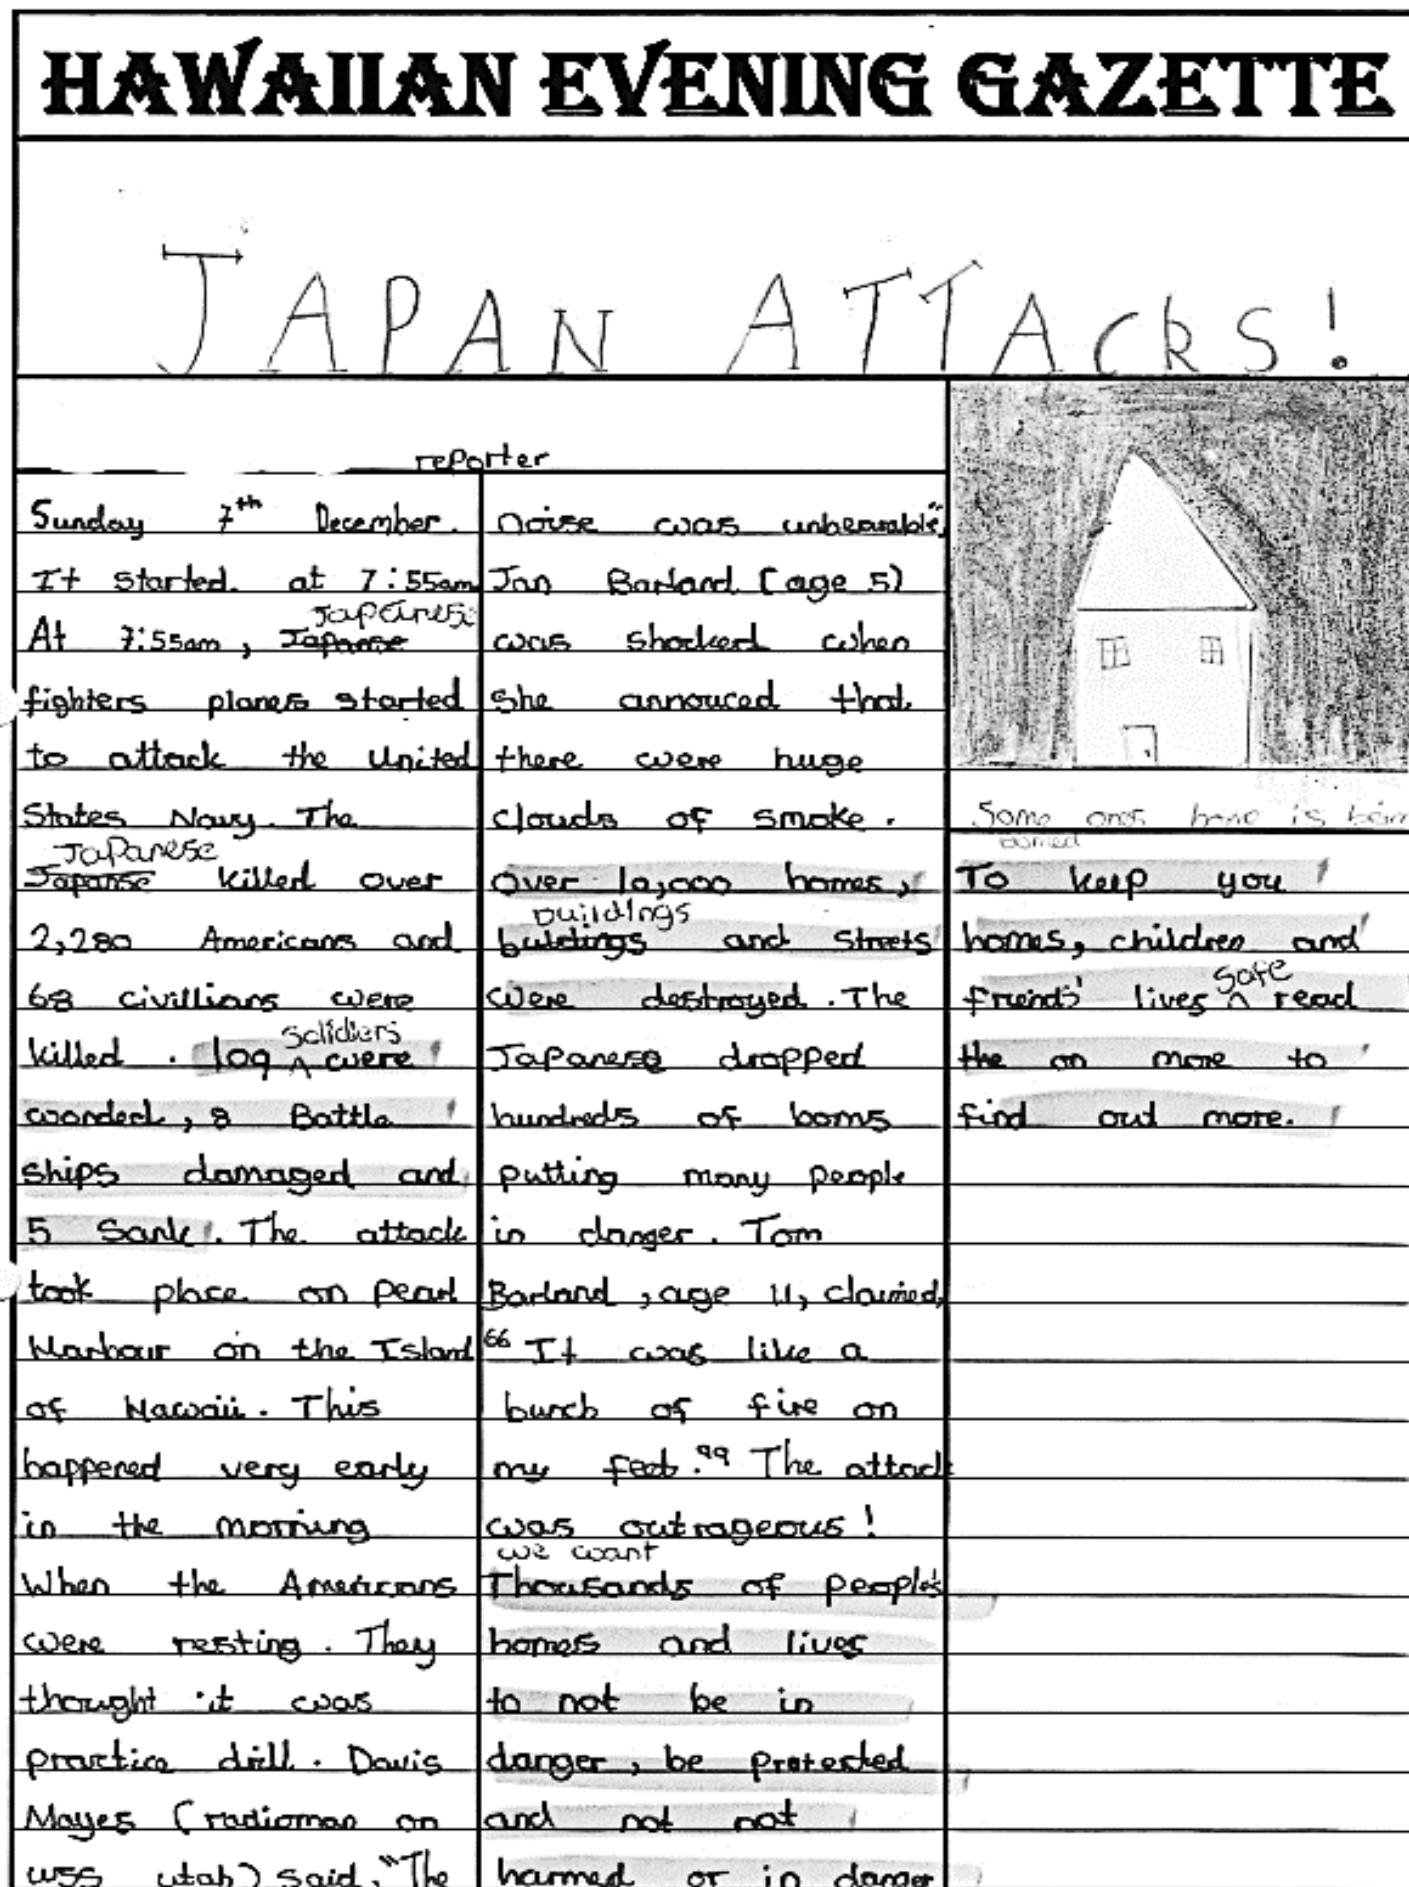 HAWAIIAN EVENING GAZETTE
JAPAN ATTAcks!
reporter
Sunday 7th December.
It started. at 7:55am
Japanese
At 7:55am, Japanse
fighters planes started
to attack the United
States Navy. The
Japanese
Japanse killed over
2,280 Americans and
68 civillians were
soliders
killed. 109 ^ were
wonded, 8 Battle
ships damaged and
5 Sank. The attack
took place on Pearl
Harbour on the Island
of Hawaii. This
happened very early
in the morning
When the Americans
were resting. They
thought it was
practice drill. Davis
Mayes (radioman on
USS utah) said, "The
noise was unbearable",
Jan Barland (age 5)
was shocked when
she annouced that
there were huge
clouds of smoke.
Over 10,000 homes,
buildings
buildings and streets
were destroyed. The
Japanese dropped
hundreds of boms
putting many people
in danger. Tom
Barland, age 11, claimed,
"It was like a
bunch of fire on
my feet." The attack
was outrageous!
we want
Thousands of people's
homes and lives
to not be in
danger, be protected
and not not
harmed or in danger
Some ones is
bomed
To keep you
homes, children and
safe
friends' lives ^ read
the on more to
find out more.